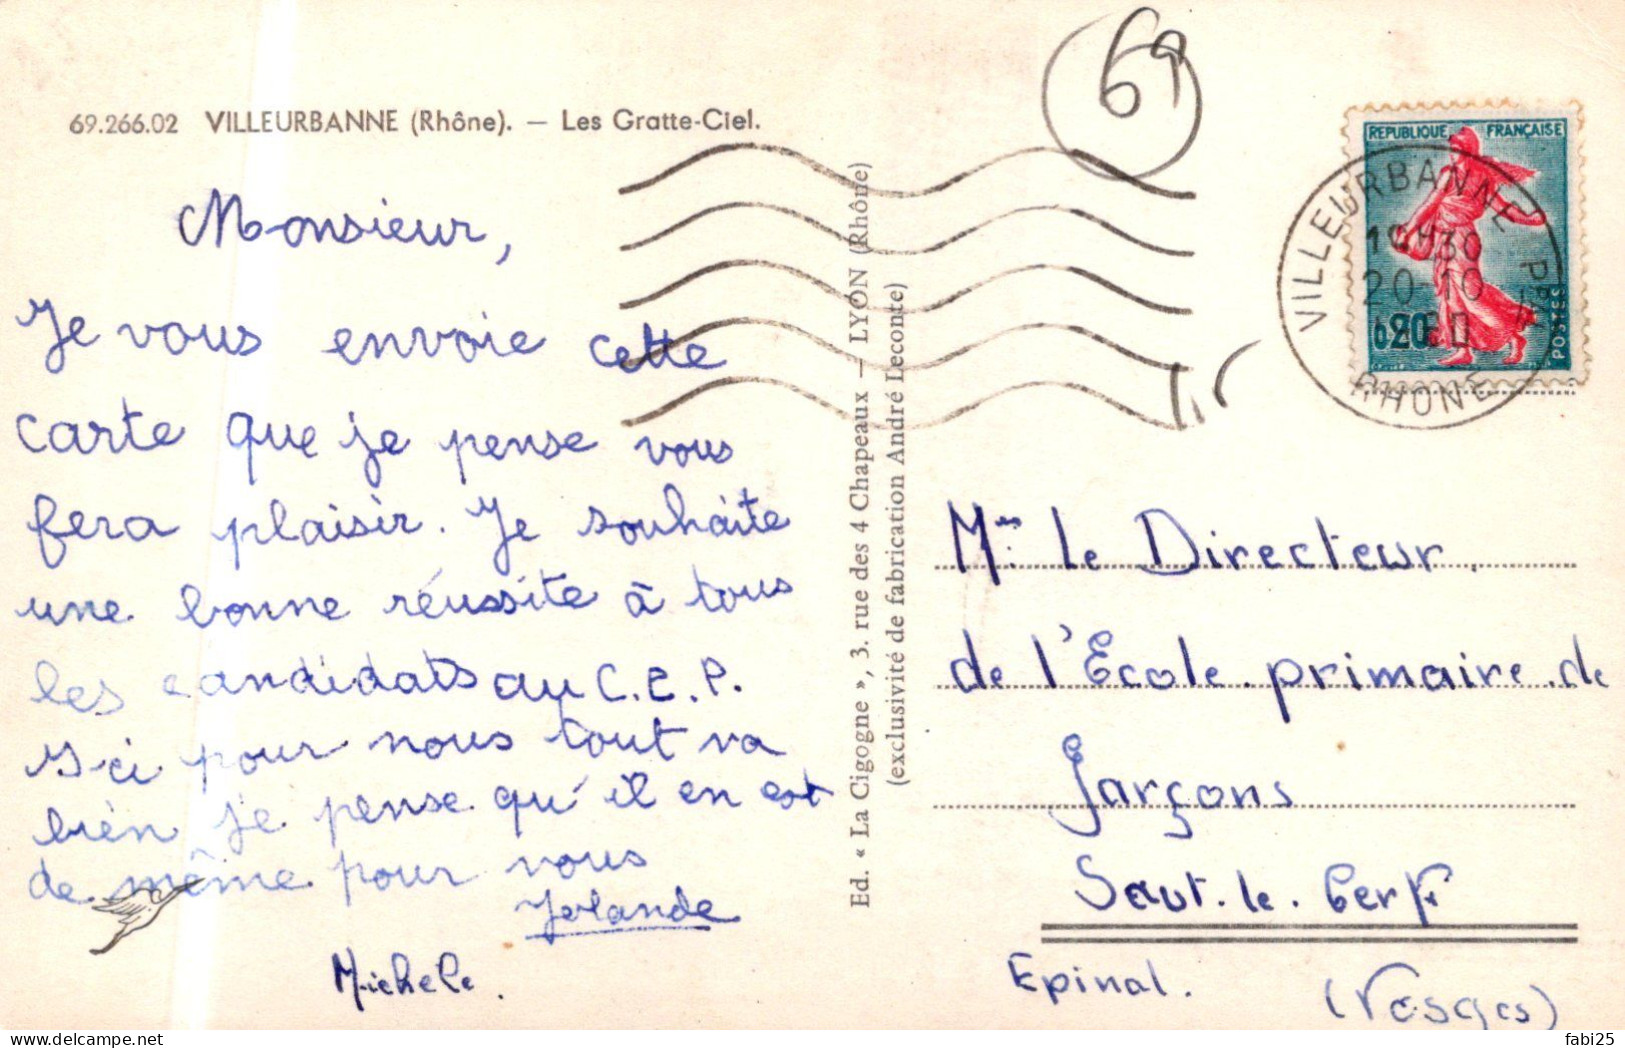 69.266.02 VILLEURBANNE (Rhône). — Les Gratte-Ciel.
69
REPUBLIQUE FRANÇAISE
POSTES
0,20
VILLEURBANNE PPAL
20-10
RHONE
Monsieur,
Je vous envoie cette
carte que je pense vous
fera plaisir. Je souhaite
une bonne réussite à tous
les candidats au C.E.P.
Ici pour nous tout va
bien je pense qu'il en est
de même pour vous
Yolande
Michele.
Ed. « La Cigogne », 3. rue des 4 Chapeaux — LYON (Rhône)
(exclusivité de fabrication André Leconte)
Mr le Directeur.
de l'Ecole primaire de
Garçons
Saut.le.Cerf
Epinal.
(Vosges)
delcampe.net
fabi25